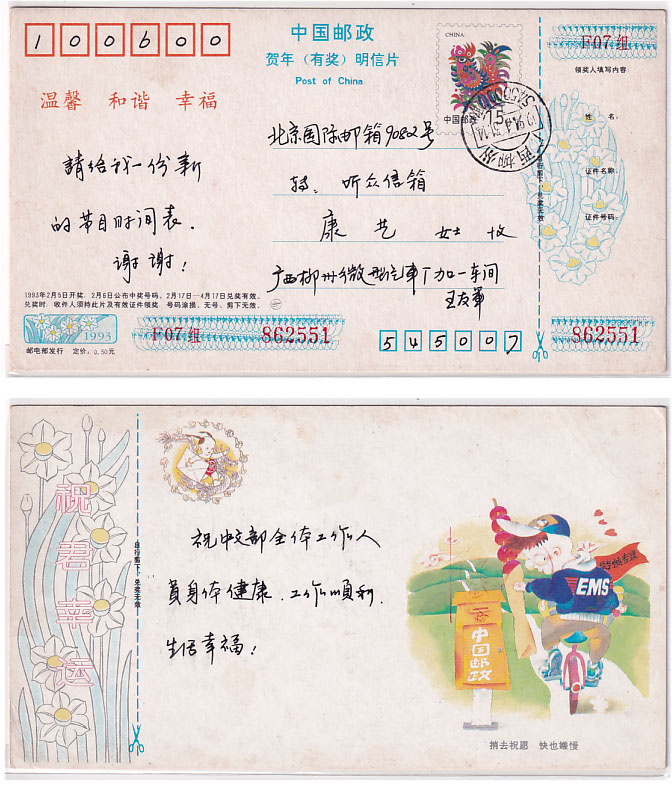 100600
中国邮政
贺年（有奖）明信片
Post of China
CHINA
中国邮政
F07 组
领奖人填写内容
姓 名:
证件名称:
证件号码:
自行剪下，兑奖无效
温馨 和谐 幸福
請给我一份新
的节目时间表.
谢谢!
北京国际邮箱9082号
转: 听众信箱
康艺 女士 收
广西柳州微型汽車厂加一车间
王友軍
1993年2月5日开奖，2月6日公布中奖号码，2月17日—4月17日兑奖有效。
兑奖时 收件人须持此片及有效证件领奖 号码涂损、无号、剪下无效。
1993
邮电部发行 定价: 0.50元
F07 组 862551
545007
862551
祝君幸运
自行剪下，兑奖无效
祝中文部全体工作人
員身体健康、工作順利.
生活幸福!
特快专递
EMS
中国邮政
捎去祝愿 快也嫌慢